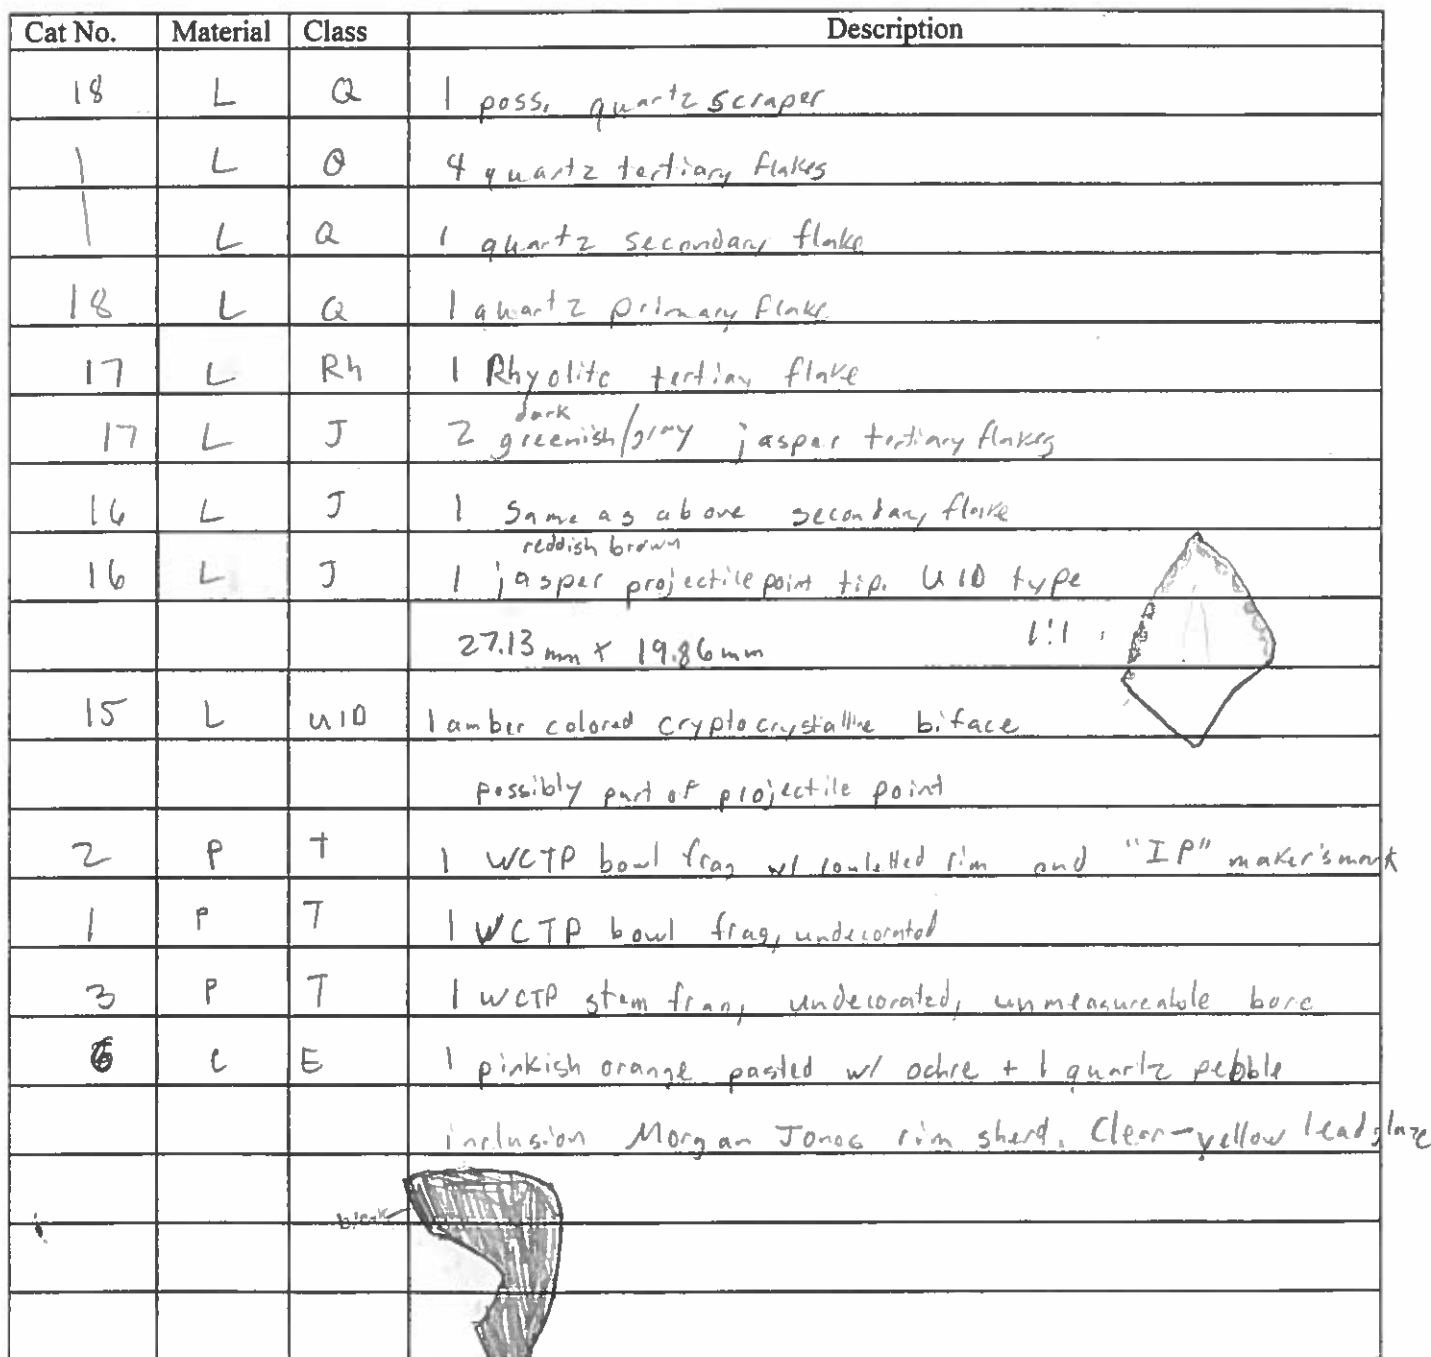 Cat No. Material Class Description
18 L Q 1 poss. quartz scraper
| L Q 4 quartz tertiary flakes
| L Q 1 quartz secondary flake
18 L Q 1 quartz primary flake
17 L Rh 1 Rhyolite tertiary flake
dark
17 L J 2 greenish/gray jasper tertiary flakes
16 L J 1 Same as above secondary flake
reddish brown
16 L J 1 jasper projectile point tip. UID type
27.13 mm x 19.86 mm 1:1
15 L UID 1 amber colored cryptocrystalline biface
possibly part of projectile point
2 P T 1 WCTP bowl frag w/ rouletted rim and "IP" maker's mark
1 P T 1 WCTP bowl frag, undecorated
3 P T 1 WCTP stem frag, undecorated, unmeasureable bore
6 C E 1 pinkish orange pasted w/ ochre + 1 quartz pebble
inclusion Morgan Jones rim sherd. Clear-yellow lead glaze
break